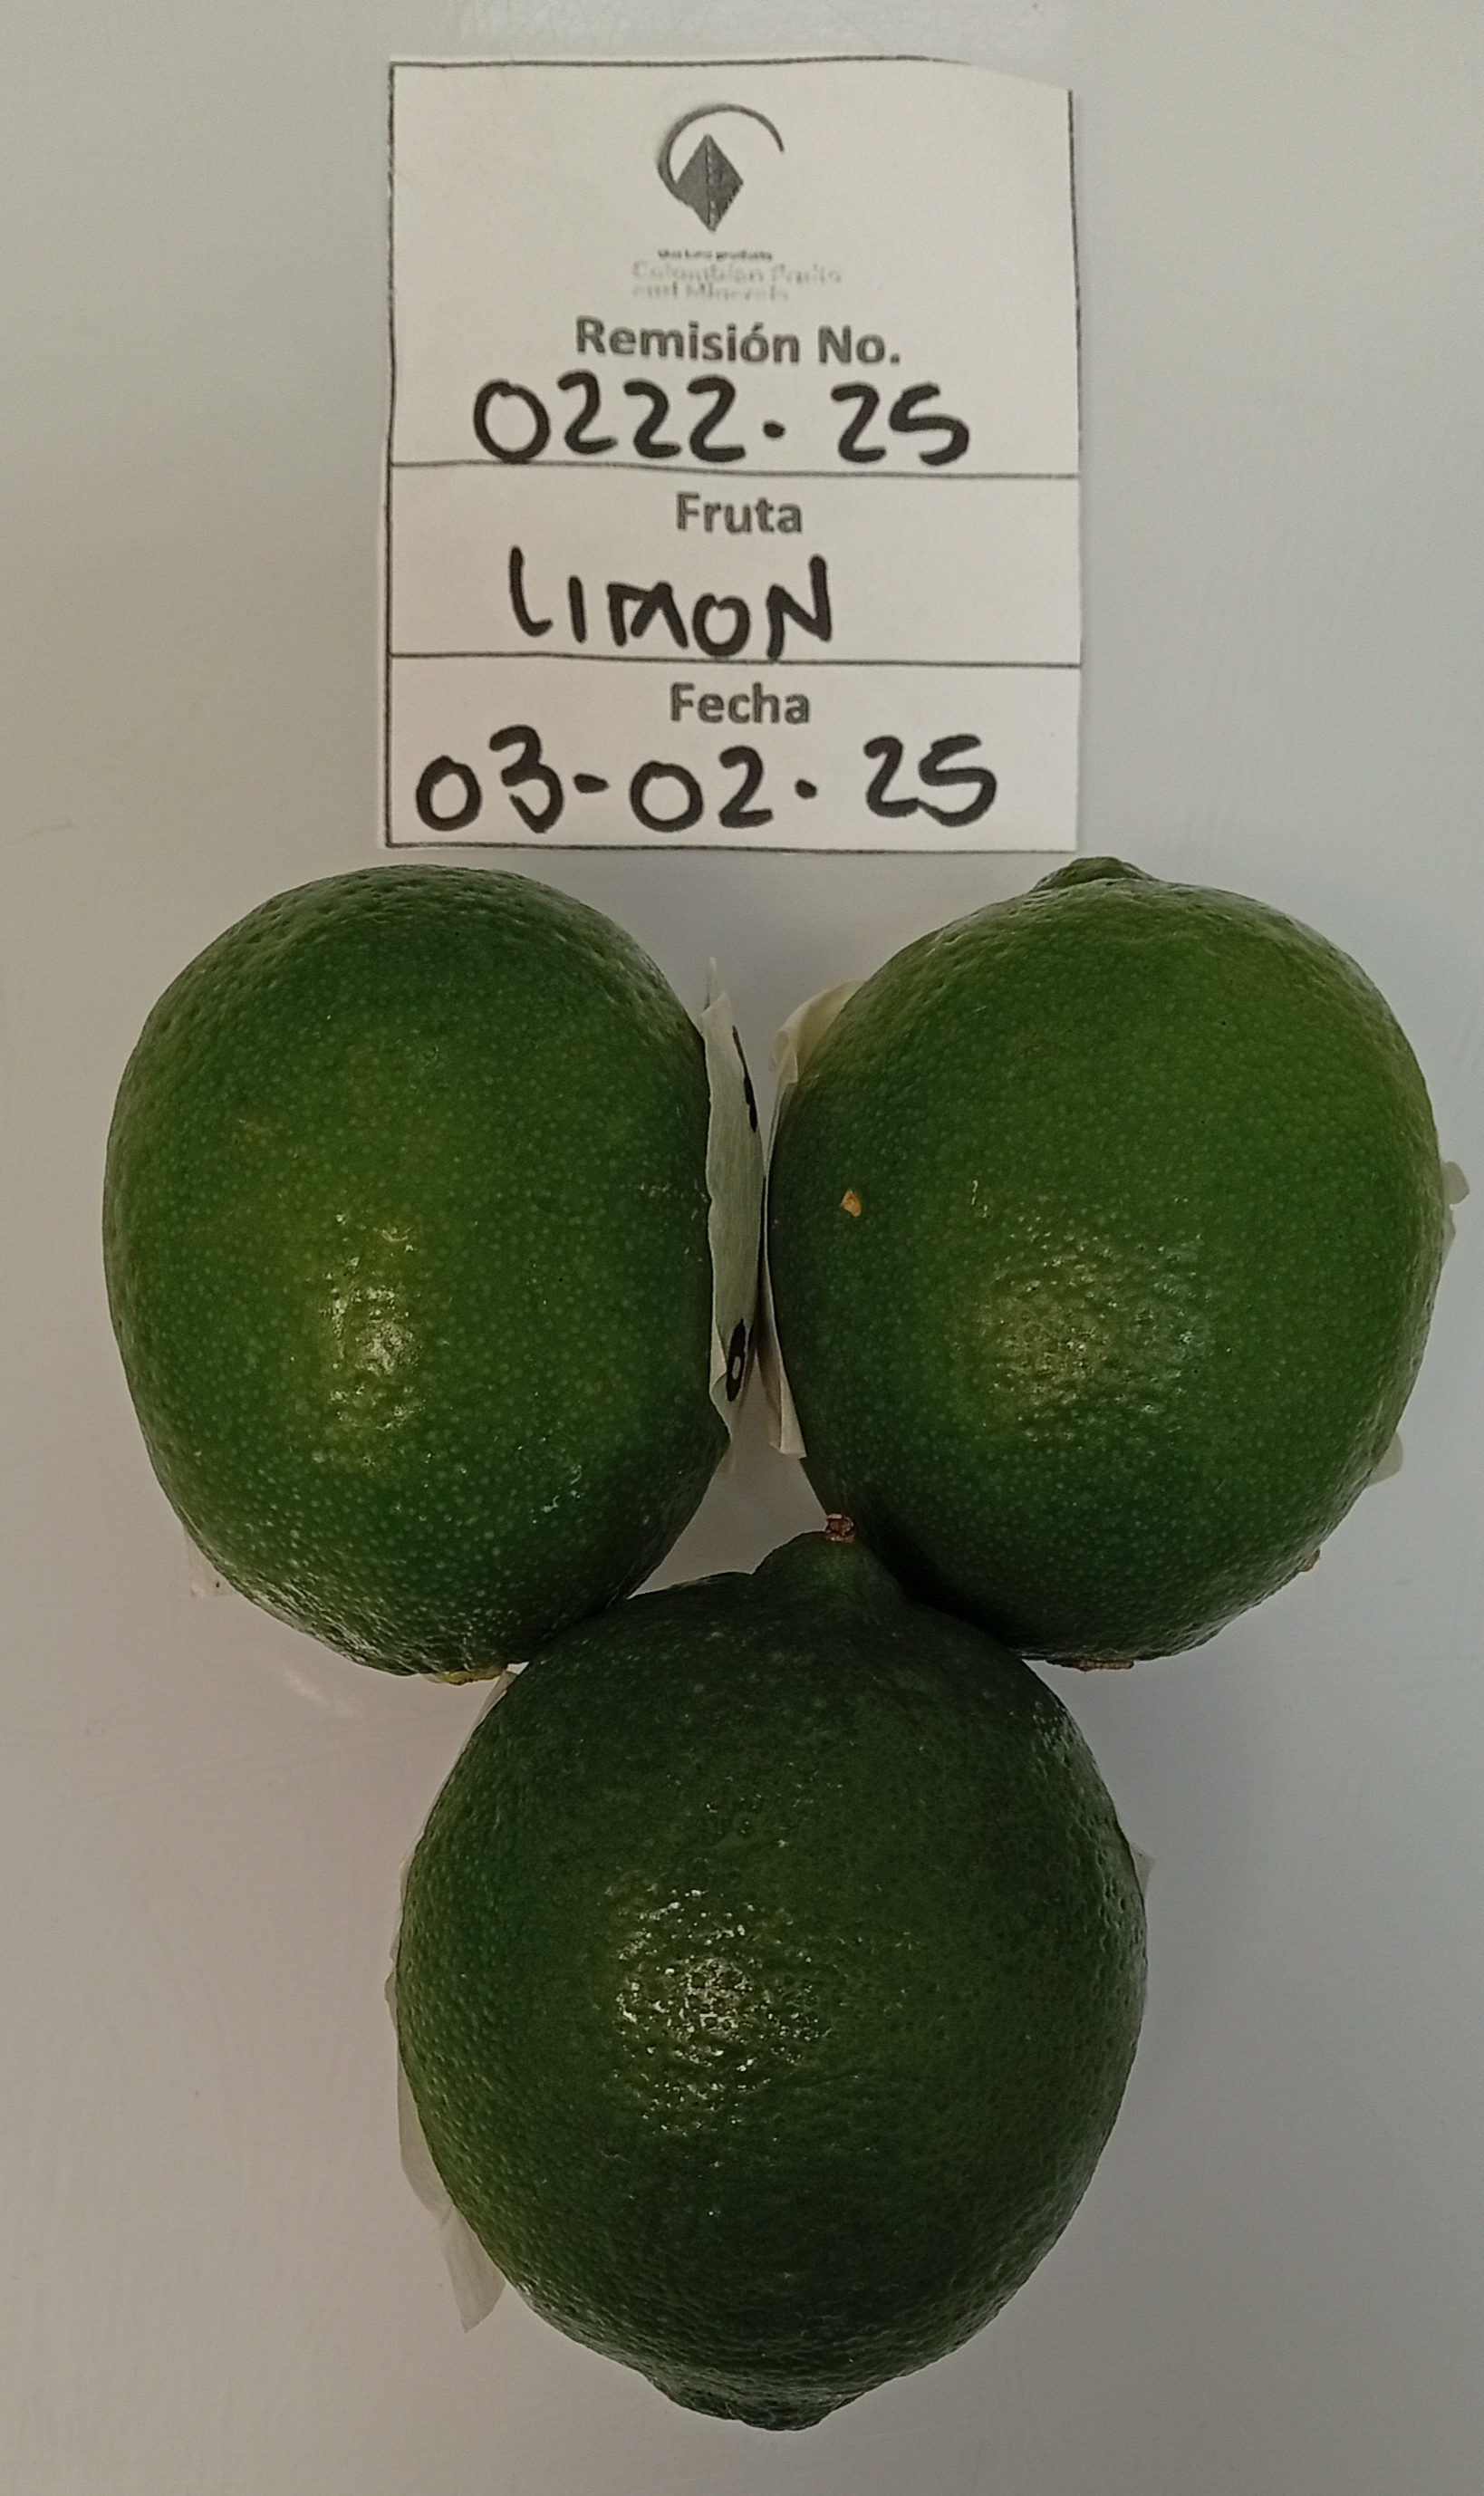 Colombian Fruits
and Minerals
Remisión No.
0222. 25
Fruta
LIMON
Fecha
03-02. 25